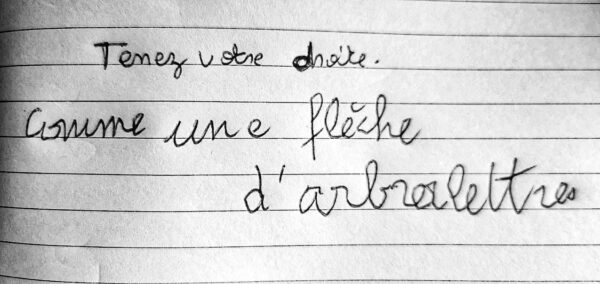 Tenez votre droite.
Comme une flèche
d'arbralettres